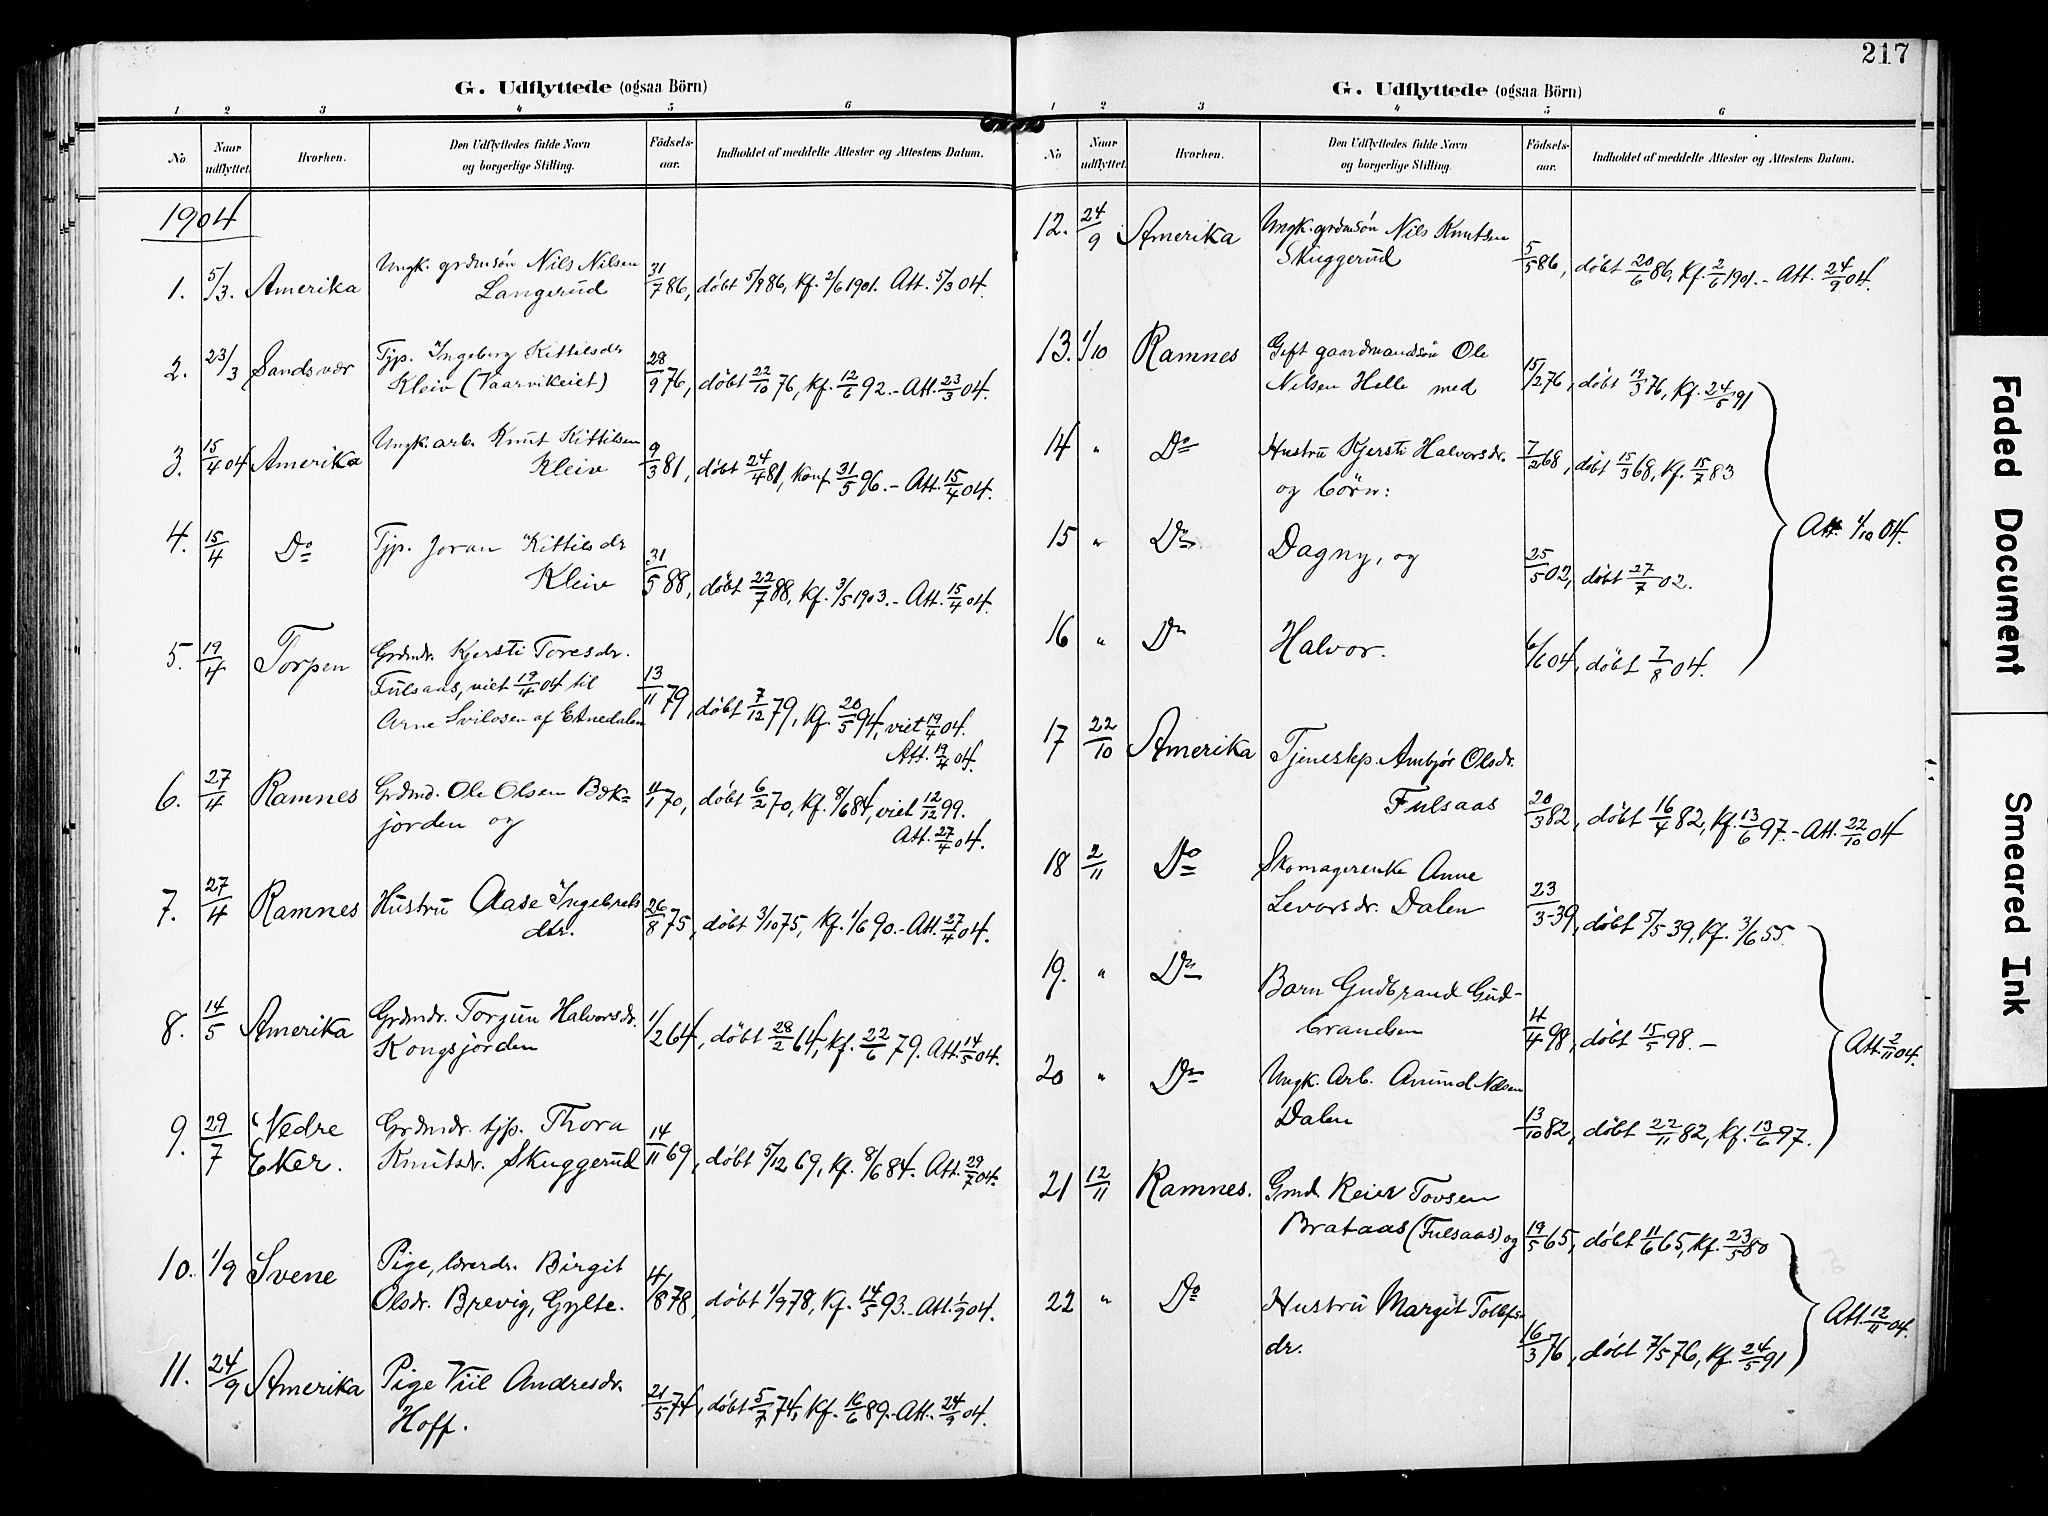 217
G. Udflyttede (ogsaa Börn)
1 2 3 4 5 6
No
Naar udflyttet.
Hvorhen.
Den Udflyttedes fulde Navn og borgerlige Stilling.
Födsels-aar.
Indholdet af meddelte Attester og Attestens Datum.
1904
1. 5/3. Amerika Ungk. grdmsøn Nils Nilsen
Langerud 31/7 86, døbt 5/9 86, Kf. 2/6 1901. Att. 5/3 04.
2. 23/3 Sandsvær Tjp. Ingeborg Kittilsdr
Kleiv (Vaarvikeiet) 28/9 76, døbt 22/10 76, Kf. 12/6 92. - Att. 23/3 04.
3. 15/4 04 Amerika Ungk. arb. Knut Kittilsen
Kleiv 9/3 81, døbt 24/4 81, Konf 31/5 96. - Att. 15/4 04.
4. 15/4 Do Tjp. Joran Kittilsdr
Kleiv 31/5 88, døbt 22/7 88, Kf. 3/5 1903. - Att. 15/4 04.
5. 19/4 Torpen Grdmdr. Kjersti Toresdr.
Fulsaas, viet 19/4 04 til
Arne Svilosen af Etnedalen 13/11 79, døbt 7/12 79, Kf. 20/5 94, viet 19/4 04.
Att. 19/4 04.
6. 27/4 Ramnes Grdmd. Ole Olsen Bæk=
jorden og 11/1 70, døbt 6/2 70, Kf. 8/6 84, viet 12/12 99.
Att. 27/4 04.
7. 27/4 Ramnes Hustru Aase Ingebrets
dtr. 26/8 75, døbt 3/10 75, Kf. 1/6 90. - Att. 27/4 04.
8. 14/5 Amerika Grdmdr. Torgun Halvorsdr.
Kongsjorden 1/2 64, døbt 28/2 64, Kf. 22/6 79. Att. 14/5 04.
9. 29/7 Nedre
Eker. Grdmdr. tjp. Thora
Knutsdr. Skuggerud 14/11 69, døbt 5/12 69, Kf. 8/6 84. Att. 29/7 04.
10. 1/9 Svene Pige, lærerdr. Birgit
Olsdr. Brevig, Gylte. 4/8 78, døbt 1/9 78, Kf. 14/5 93. - Att. 1/9 04.
11. 24/9 Amerika Pige Viil Andresdr.
Hoff. 21/5 74, døbt 5/7 74, Kf. 16/6 89. - Att. 24/9 04.
G. Udflyttede (ogsaa Börn)
1 2 3 4 5 6
No
Naar udflyttet.
Hvorhen.
Den Udflyttedes fulde Navn og borgerlige Stilling.
Födsels-aar.
Indholdet af meddelte Attester og Attestens Datum.
12. 24/9 Amerika Ungk. grdmsøn Nils Knutsen
Skuggerud 5/5 86, døbt 20/6 86, Kf. 2/6 1901. - Att. 24/9 04.
13. 1/10 Ramnes Gift gaardmandsøn Ole
Nilsen Helle med 15/2 76, døbt 19/3 76, Kf. 24/5 91
14 " Do Hustru Kjersti Halvorsdr.
og børn: 7/2 68, døbt 15/3 68, Kf. 15/7 83
15 " Do Dagny, og 25/5 02, døbt 27/7 02.
Att. 1/10 04.
16 " Do Halvor. 6/6 04, døbt 7/8 04.
17 22/10 Amerika Tjenestp. Ambjør Olsdr.
Fulsaas 20/3 82, døbt 16/4 82, Kf. 13/6 97. - Att. 22/10 04
18 2/11 Do Skomagerenke Anne
Levorsdr. Dalen 23/3 - 39, døbt 5/5 39, Kf. 3/6 55.
19. " Do Barn Gudbrand Gud-
brandsen 4/4 98, døbt 15/5 98. -
Att. 2/11 04.
20 " Do Ungk. Arb. Amund Nilsen
Dalen 13/10 82, døbt 22/11 82, Kf. 13/6 97.
21 12/11 Ramnes. Gmd. Reier Tovsen
Brataas (Fulsaas) og 19/5 65, døbt 11/6 65, Kf. 23/5 80
22 " Do Hustru Margit Tollefs
dr. 16/3 76, døbt 7/5 76, Kf. 24/5 91
Att. 12/11 04.
Faded Document
Smeared Ink